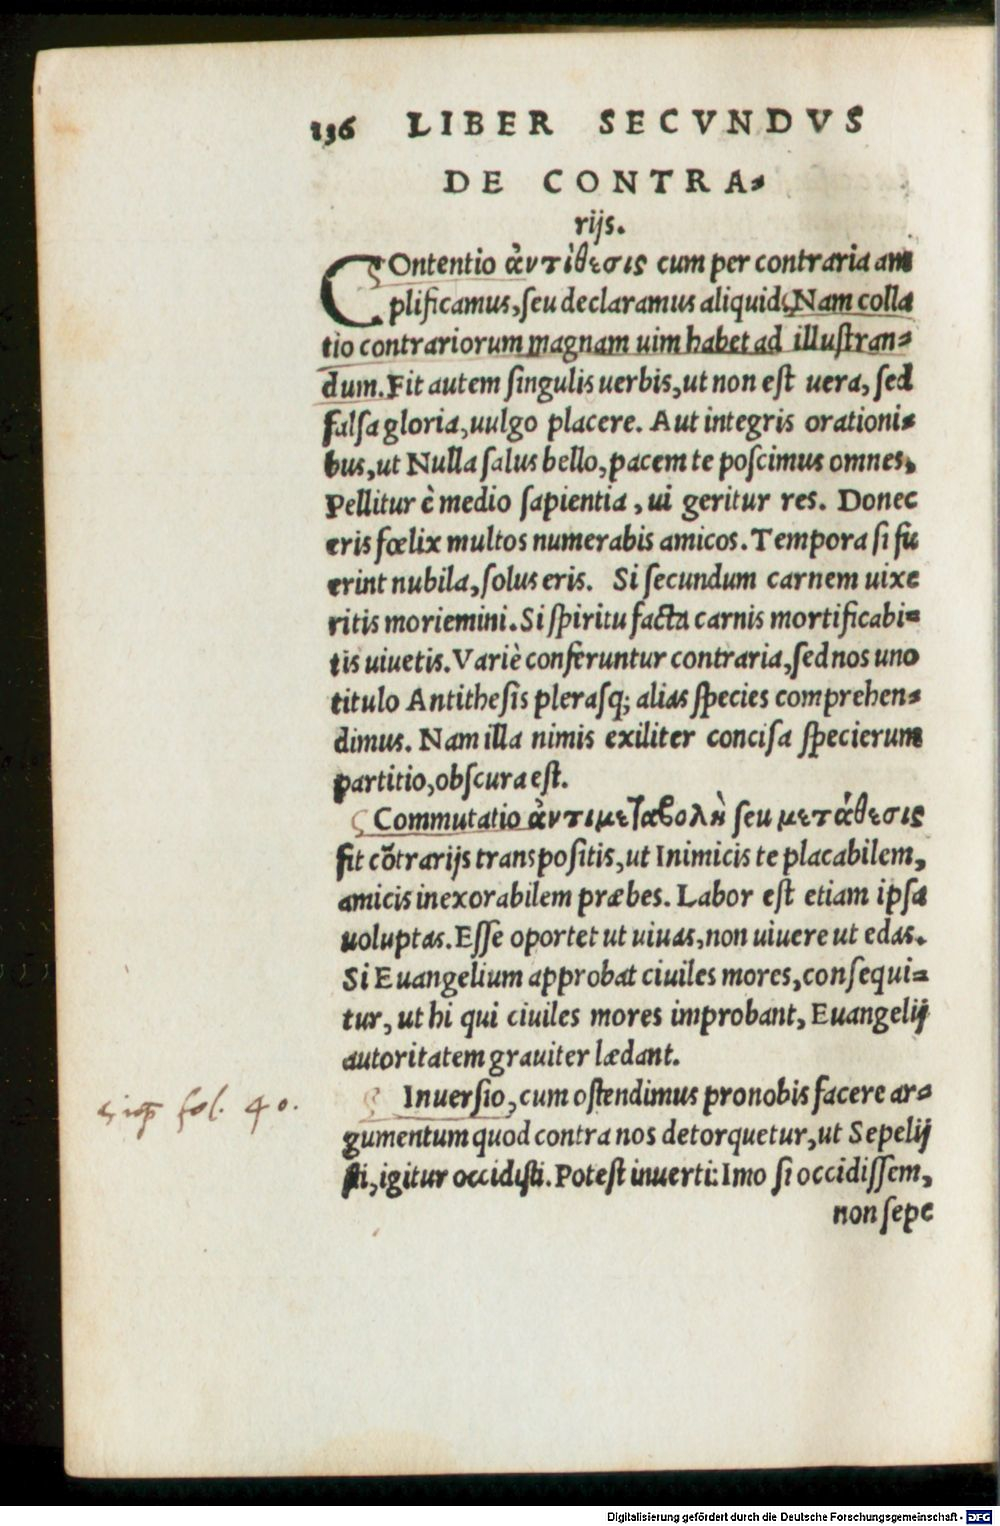 136 LIBER SECVNDVS
DE CONTRA-
rijs.
COntentio ἀντίθεσις cum per contraria am
plificamus, seu declaramus aliquid. Nam colla
tio contrariorum magnam uim habet ad illustran-
dum. Fit autem singulis uerbis, ut non est uera, sed
falsa gloria, uulgo placere. Aut integris orationi-
bus, ut Nulla salus bello, pacem te poscimus omnes.
Pellitur è medio sapientia, ui geritur res. Donec
eris fœlix multos numerabis amicos. Tempora si fu
erint nubila, solus eris. Si secundum carnem uixe
ritis moriemini. Si spiritu facta carnis mortificabi-
tis uiuetis. Variè conferuntur contraria, sed nos uno
titulo Antithesis plerasq; alias species comprehen-
dimus. Nam illa nimis exiliter concisa specierum
partitio, obscura est.
Commutatio ἀντιμεταβολὴ seu μετάθεσις
fit cõtrarijs transpositis, ut Inimicis te placabilem,
amicis inexorabilem præbes. Labor est etiam ipsa
uoluptas. Esse oportet ut uiuas, non uiuere ut edas.
Si Euangelium approbat ciuiles mores, consequi-
tur, ut hi qui ciuiles mores improbant, Euangelij
autoritatem grauiter lædant.
Inuersio, cum ostendimus pro nobis facere ar-
gumentum quod contra nos detorquetur, ut Sepelij
sti, igitur occidisti. Potest inuerti: Imo si occidissem,
non sepe
fol. 40.
Digitalisierung gefördert durch die Deutsche Forschungsgemeinschaft - DFG